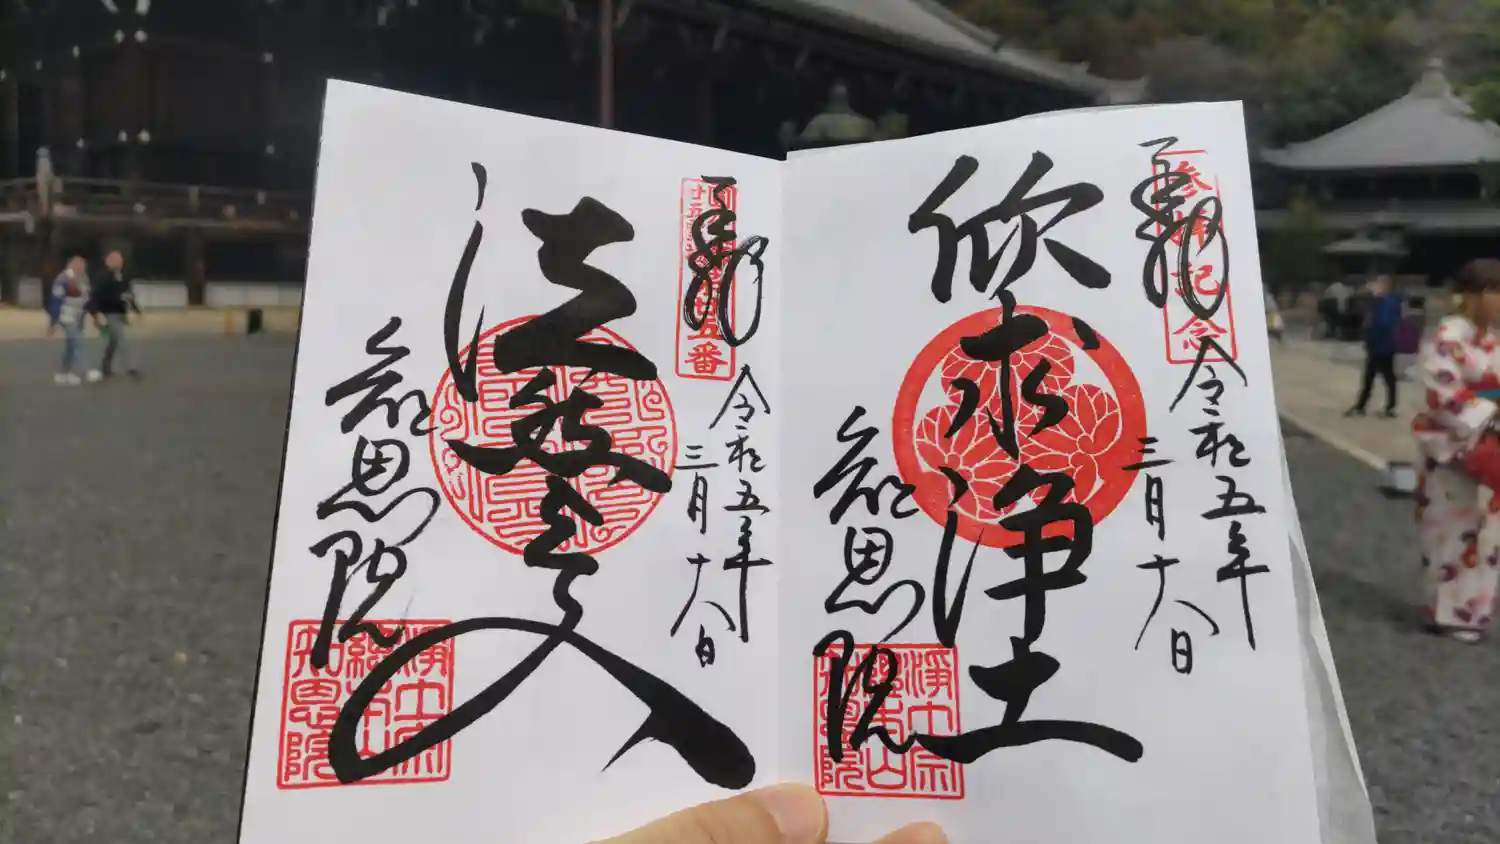 奉拝
参拝記念
令和五年
三月十八日
欣求浄土
知恩院
浄土宗
總本山
知恩院
奉拝
令和五年
三月十八日
法然上人
知恩院
浄土宗
總本山
知恩院